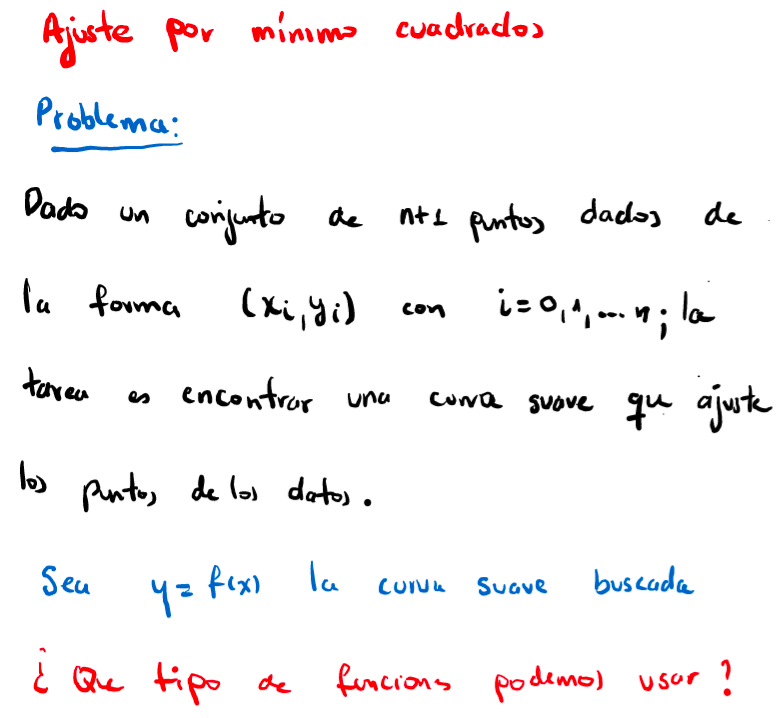 Ajuste por mínimo cuadrados
Problema:
Dado un conjunto de n+1 puntos dados de
la forma (xi, yi) con i=0,1,...n; la
tarea es encontrar una curva suave que ajuste
los puntos de los datos.
Sea y=f(x) la curva suave buscada
¿ Que tipo de funcions podemos usar?